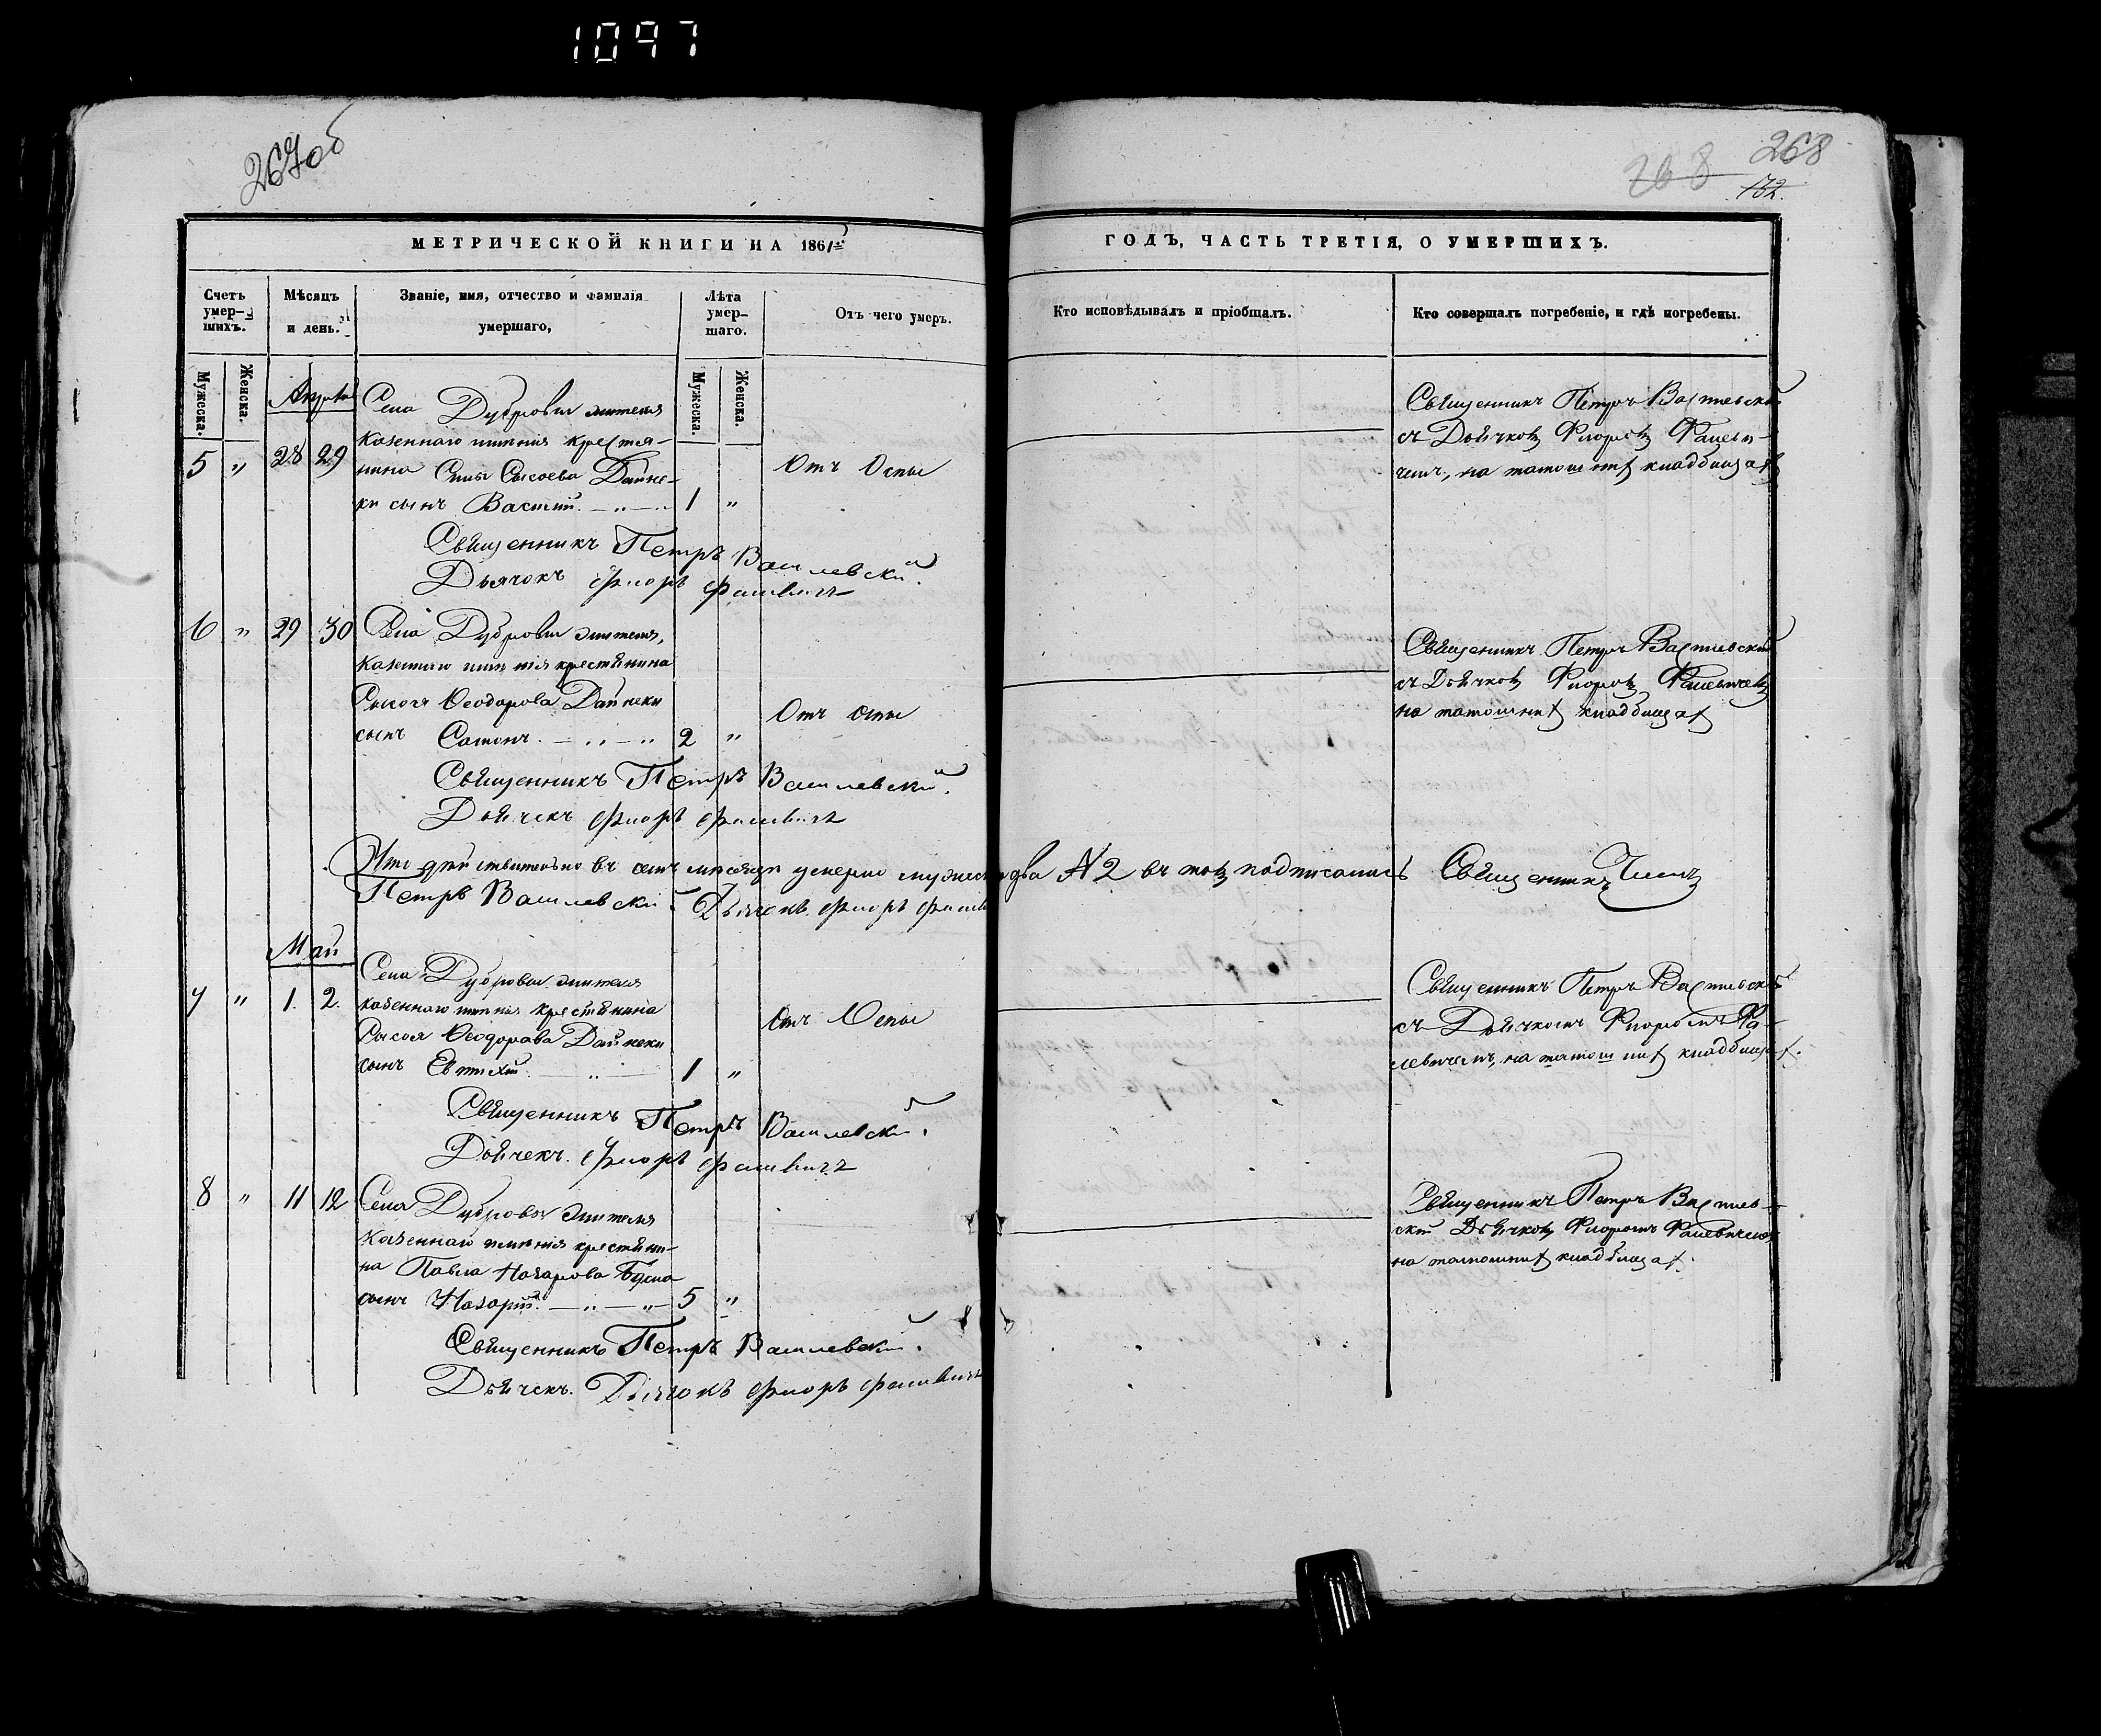 1097
267об
268
268
132.
МЕТРИЧЕСКОЙ КНИГИ НА 1861й
ГОДЪ, ЧАСТЬ ТРЕТІЯ, О УМЕРШИХЪ.
Счетъ умер-шихъ.
Мѣсяцъ и день.
Званіе, имя, отчество и фамилія умершаго,
Лѣта умер-шаго.
Отъ чего умеръ.
Кто исповѣдывалъ и пріобщалъ.
Кто совершалъ погребеніе, и гдѣ погребены.
Мужеска.
Женска.
Мужеска.
Женска.
Апрѣль
5 " 28 29
Села Дубровы жителя
казеннаго имѣнія крестья-
нина Сысоева Дайне-
ки сынъ Василій 1 "
Отъ Оспы
Священникъ Петръ Василевскій
съ Дьячкомъ Флоромъ Фалеви-
чемъ, на тамошнихъ кладбищахъ
Священникъ Петръ Василевскій.
Дьячокъ Флоръ Фалевичъ
6 " 29 30
Села Дубровы жителя,
казеннаго имѣнія крестьянина
Сысоя Ѳеодорова Дайнеки
сынъ Самонъ 2 "
Отъ оспы
Священникъ Петръ Василевскій
съ Дьячкомъ Флоромъ Фалевичемъ
на тамошнихъ кладбищахъ
Священникъ Петръ Василевскій.
Дьячекъ Флоръ Фалевичъ
Что дѣйствительно въ семъ мѣсяцѣ умерло мужеска два № 2 въ томъ подписались Священникъ
Петръ Василевскій Дьячекъ Флоръ
Май
7 " 1. 2.
Села Дубровы жителя
казеннаго имѣнія крестьянина
Сысоя Ѳеодорова Дайнеки
сынъ Евтихій 1 "
Отъ Оспы
Священникъ Петръ Василевскій
съ Дьячкомъ Флоромъ Фа-
левичемъ, на тамошнихъ кладбищахъ.
Священникъ Петръ Василевскій.
Дьячекъ. Флоръ Фалевичъ
8 " 11 12
Села Дубровы жителя
казеннаго имѣнія крестьяни-
на Павла Назарова
сынъ Назарій 5 "
Священникъ Петръ Василев-
скій Дьячкомъ Флоромъ Фалевичемъ,
на тамошнихъ кладбищахъ.
Священникъ Петръ Василевскій.
Дьячекъ. Дьячокъ Флоръ Фалевичъ